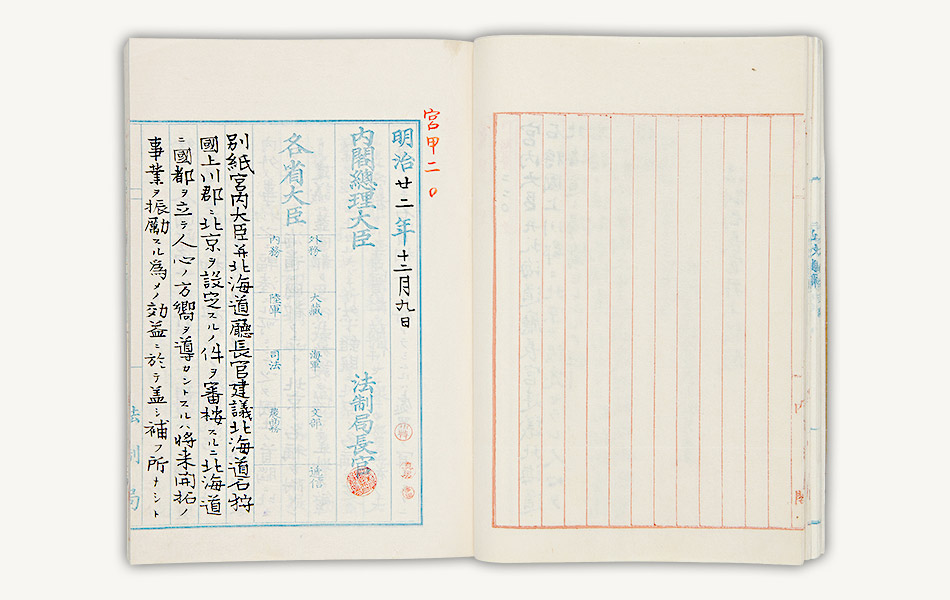 宮甲二〇
明治廿二年十二月九日
内閣總理大臣
法制局長官
各省大臣
外務 大藏 海軍 文部 遞信
内務 陸軍 司法 農商務
別紙宮内大臣并北海道廳長官建議北海道石狩
國上川郡ニ北京ヲ設定スルノ件ヲ審按スルニ北海道
ニ國都ヲ立テ人心ノ方嚮ヲ導カントスルハ將来開拓ノ
事業ヲ振勵スル為メノ効益ニ於テ盖シ補フ所ナシト
法制局